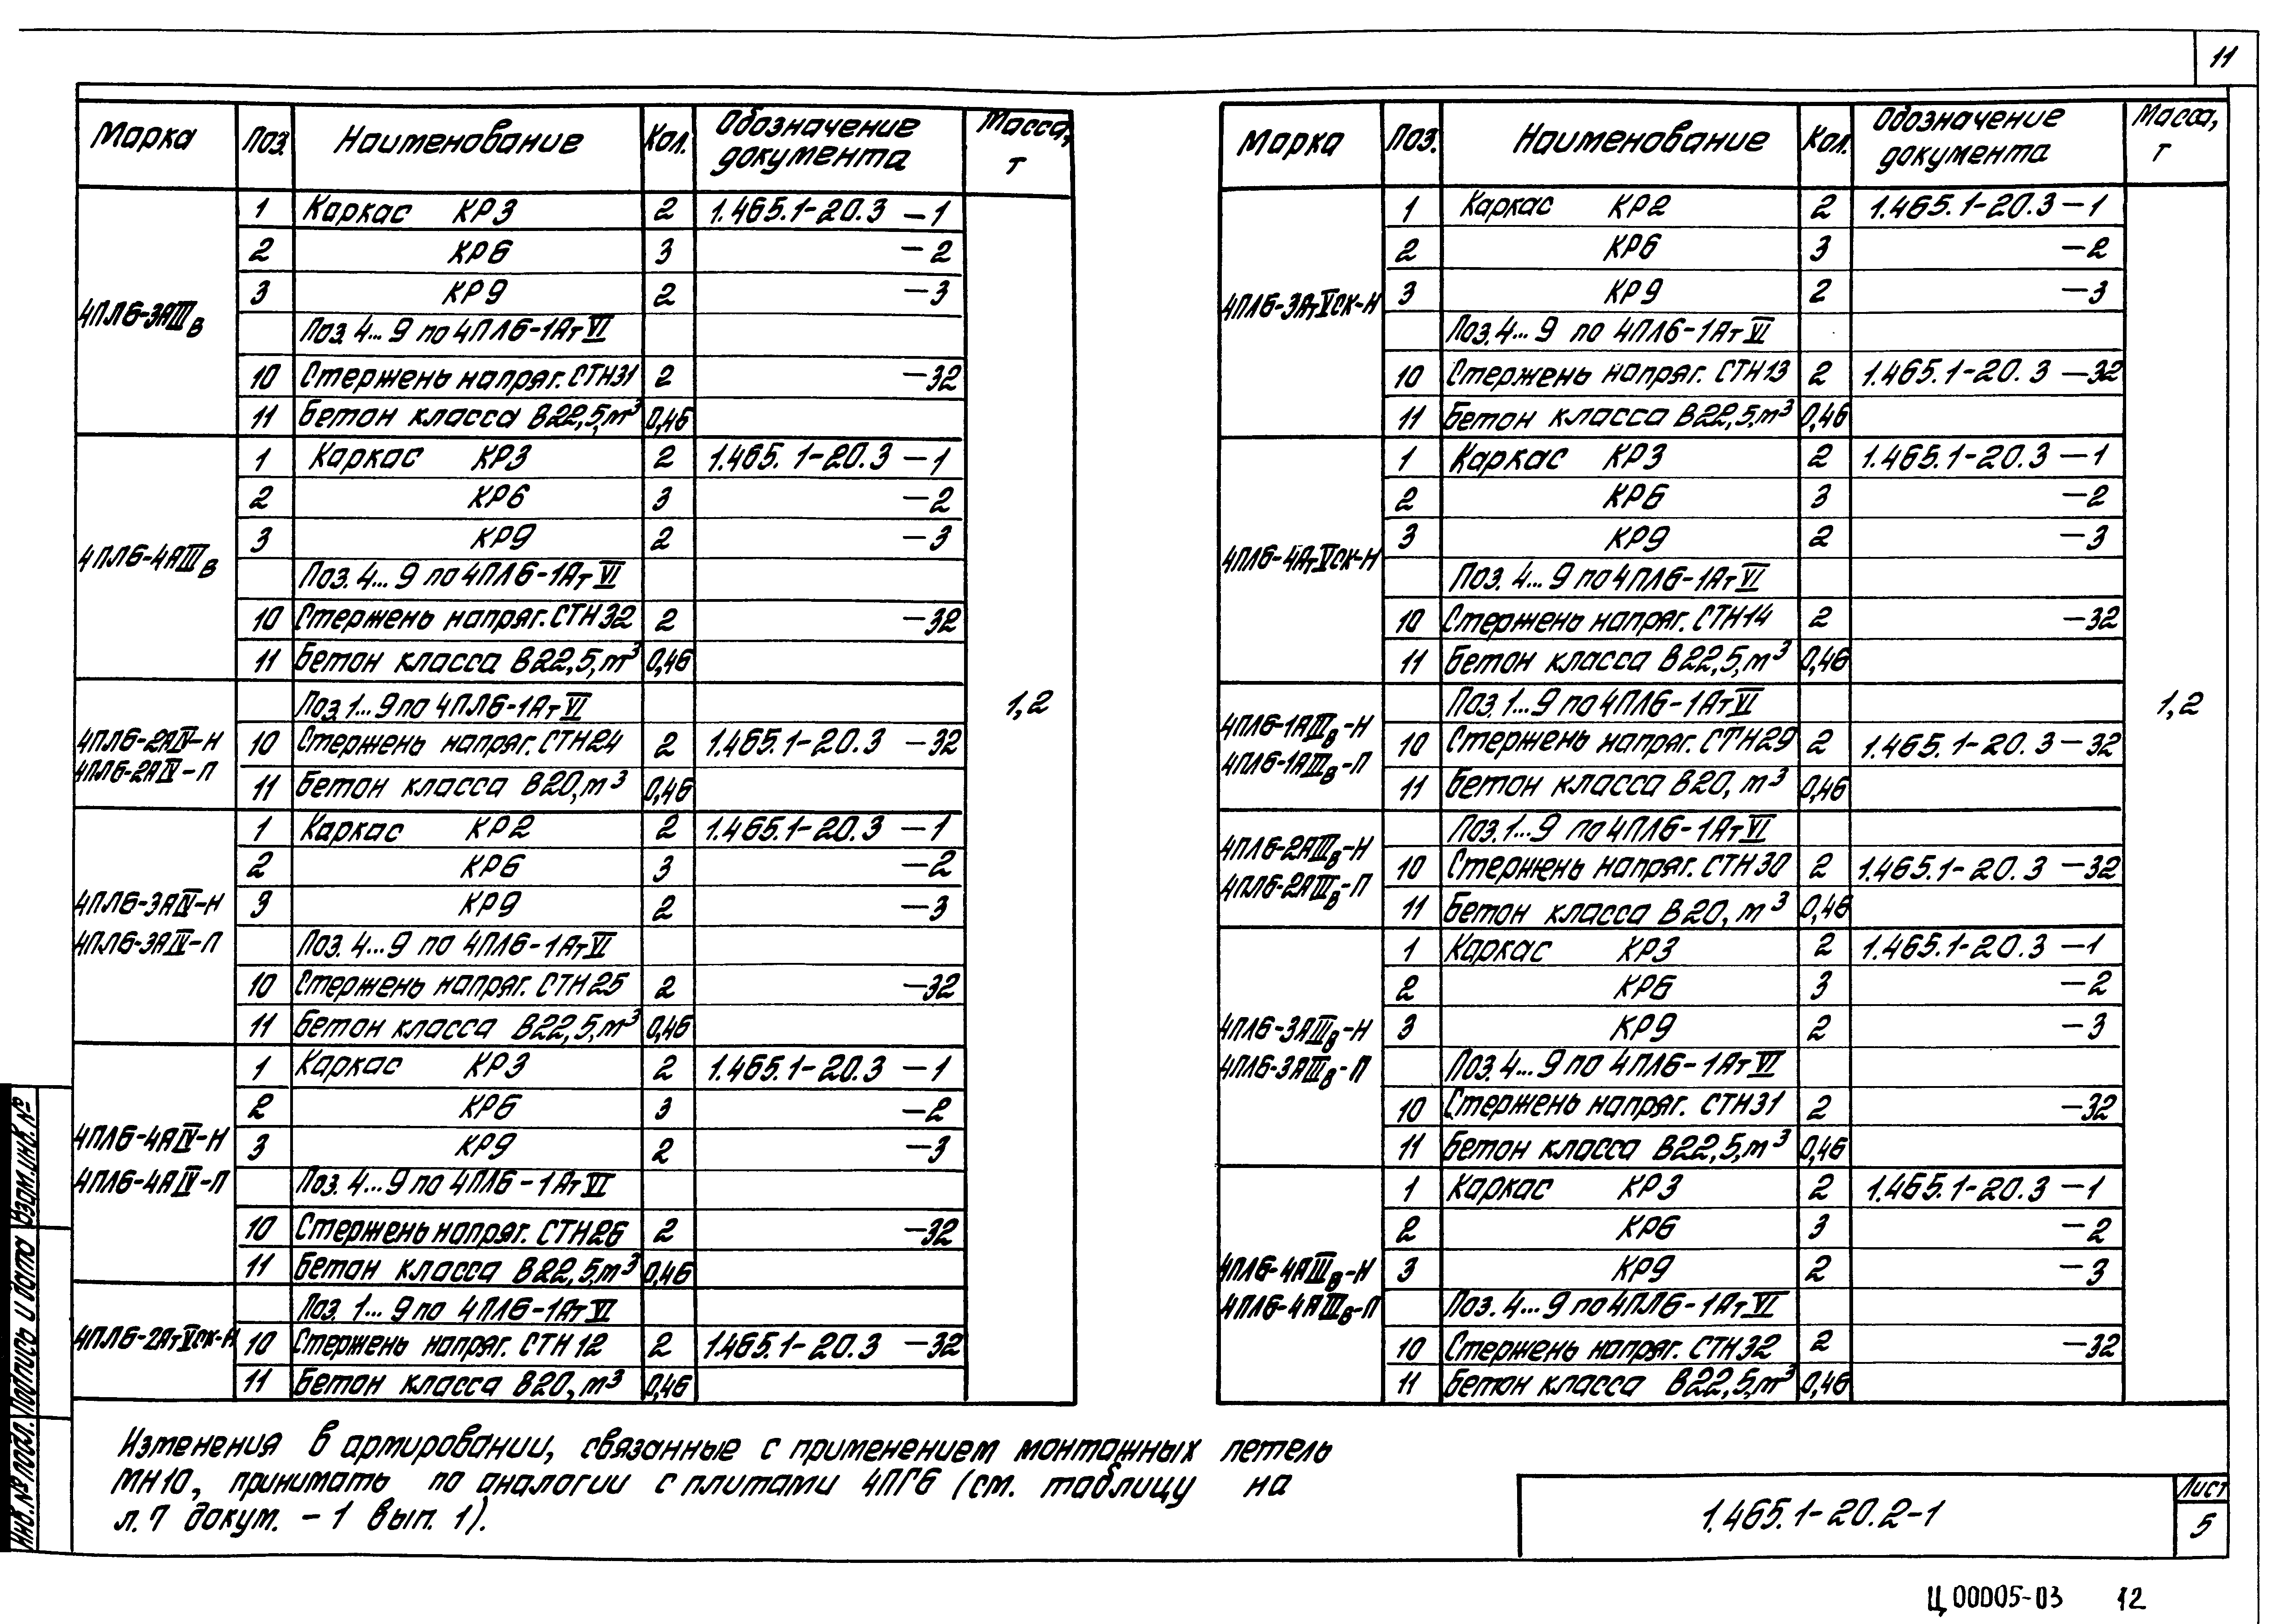 11
Марка Поз. Наименование Кол. Обозначение документа Масса, т
4ПЛ6-3АIIIв
1 Каркас КР3 2 1.465.1-20.3 -1
2 КР6 3 -2
3 КР9 2 -3
Поз. 4... 9 по 4ПЛ6-1АтVI
10 Стержень напряг. СТН31 2 -32
11 Бетон класса В22,5, м³ 0,46
4ПЛ6-4АIIIв
1 Каркас КР3 2 1.465.1-20.3 -1
2 КР6 3 -2
3 КР9 2 -3
Поз. 4... 9 по 4ПЛ6-1АтVI
10 Стержень напряг. СТН32 2 -32
11 Бетон класса В22,5, м³ 0,46
4ПЛ6-2АIV-Н
4ПЛ6-2АIV-П
Поз. 1... 9 по 4ПЛ6-1АтVI
10 Стержень напряг. СТН24 2 1.465.1-20.3 -32
11 Бетон класса В20, м³ 0,46
4ПЛ6-3АIV-Н
4ПЛ6-3АIV-П
1 Каркас КР2 2 1.465.1-20.3 -1
2 КР6 3 -2
3 КР9 2 -3
Поз. 4... 9 по 4ПЛ6-1АтVI
10 Стержень напряг. СТН25 2 -32
11 Бетон класса В22,5, м³ 0,46
4ПЛ6-4АIV-Н
4ПЛ6-4АIV-П
1 Каркас КР3 2 1.465.1-20.3 -1
2 КР6 3 -2
3 КР9 2 -3
Поз. 4... 9 по 4ПЛ6-1АтVI
10 Стержень напряг. СТН26 2 -32
11 Бетон класса В22,5, м³ 0,46
4ПЛ6-2АтVСК-Н
Поз. 1... 9 по 4ПЛ6-1АтVI
10 Стержень напряг. СТН12 2 1.465.1-20.3 -32
11 Бетон класса В20, м³ 0,46
1,2
Марка Поз. Наименование Кол. Обозначение документа Масса, т
4ПЛ6-3АтVСК-Н
1 Каркас КР2 2 1.465.1-20.3 -1
2 КР6 3 -2
3 КР9 2 -3
Поз. 4... 9 по 4ПЛ6-1АтVI
10 Стержень напряг. СТН13 2 1.465.1-20.3 -32
11 Бетон класса В22,5, м³ 0,46
4ПЛ6-4АтVСК-Н
1 Каркас КР3 2 1.465.1-20.3 -1
2 КР6 3 -2
3 КР9 2 -3
Поз. 4... 9 по 4ПЛ6-1АтVI
10 Стержень напряг. СТН14 2 -32
11 Бетон класса В22,5, м³ 0,46
4ПЛ6-1АIIIв-Н
4ПЛ6-1АIIIв-П
Поз. 1... 9 по 4ПЛ6-1АтVI
10 Стержень напряг. СТН29 2 1.465.1-20.3 -32
11 Бетон класса В20, м³ 0,46
4ПЛ6-2АIIIв-Н
4ПЛ6-2АIIIв-П
Поз. 1... 9 по 4ПЛ6-1АтVI
10 Стержень напряг. СТН30 2 1.465.1-20.3 -32
11 Бетон класса В20, м³ 0,46
4ПЛ6-3АIIIв-Н
4ПЛ6-3АIIIв-П
1 Каркас КР3 2 1.465.1-20.3 -1
2 КР6 3 -2
3 КР9 2 -3
Поз. 4... 9 по 4ПЛ6-1АтVI
10 Стержень напряг. СТН31 2 -32
11 Бетон класса В22,5, м³ 0,46
4ПЛ6-4АIIIв-Н
4ПЛ6-4АIIIв-П
1 Каркас КР3 2 1.465.1-20.3 -1
2 КР6 3 -2
3 КР9 2 -3
Поз. 4... 9 по 4ПЛ6-1АтVI
10 Стержень напряг. СТН32 2 -32
11 Бетон класса В22,5, м³ 0,46
1,2
Изменения в армировании, связанные с применением монтажных петель
МН10, принимать по аналогии с плитами 4ПГ6 (см. таблицу на
л. 7 докум. - 1 вып. 1).
Инв. № подл. Подпись и дата Взам. инв. №
1.465.1-20.2-1
Лист
5
Ц 00005-03 12